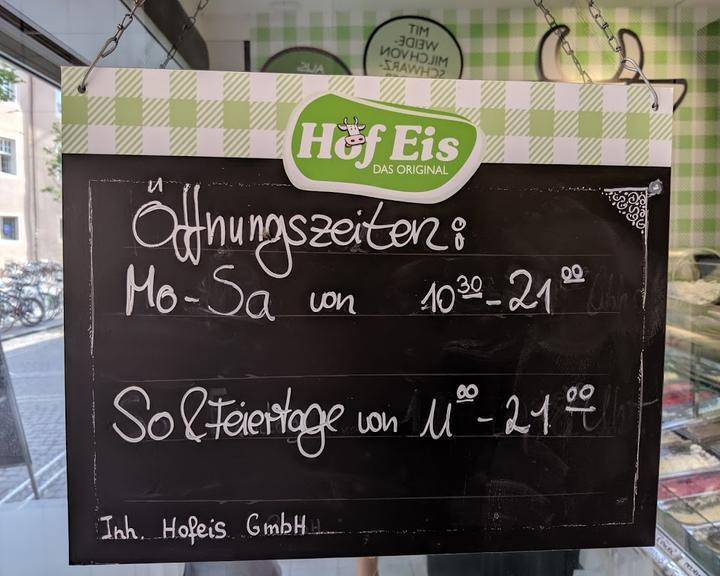 MIT
WEIDE-
MILCH VON
SCHWARZ-
AUS
Hof Eis
DAS ORIGINAL
Öffnungszeiten:
Mo-Sa von 10³⁰-21⁰⁰
So & Feiertage von 11⁰⁰-21⁰⁰
Inh. Hofeis GmbH